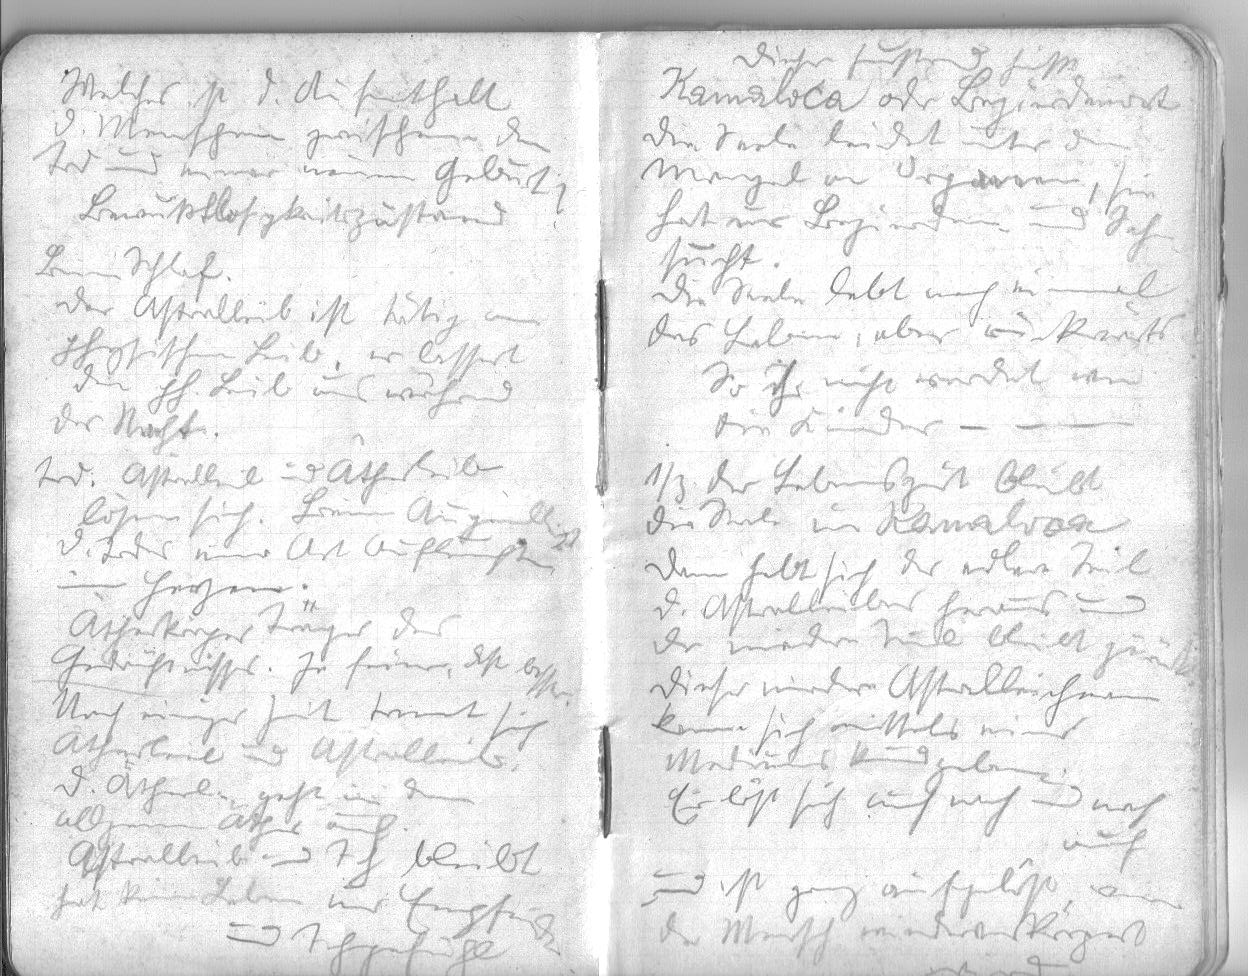 Welches ist d. Aufenthalt
d. Menschen zwischen dem
Tod und einer neuen Geburt?
Bewußtlosigkeitszustand
Beim Schlaf.
Der Astralleib ist tätig am
physischen Leib, er bessert
den ph. Leib aus während
der Nacht.
Tod. Astralleib und Ätherleib
lösen sich. Beim Augenblick
d. Todes eine Art Aufleuchten
im Herzen.
Ätherkörper Träger des
Gedächtnisses. Je feiner, desto besser.
Nach einiger Zeit trennt sich
Ätherleib und Astralleib.
d. Ätherl. geht in dem
allgem Äther auf.
Astralleib und Ich bleibt
hat kein Leben nur Empfind
und Ichgefühl
Dieser Zustand heißt
Kamaloca oder Begierdenort
Die Seele leidet unter dem
Mangel an Organen, sie
hat nur Begierden und Sehn
sucht.
Die Seele lebt noch einmal
das Leben, aber rückwärts
So ihr nicht werdet wie
die Kinder — — —
1/3 der Lebenszeit bleibt
die Seele im Kamaloca
Dann hebt sich der edlere Teil
d. Astralleibes heraus und
der niedere Teil bleibt zurück
Dieser niedere Astralleichnam
kann sich mittels eines
Mediums kundgeben.
Er löst sich auch nach und nach
auf
und ist ganz aufgelöst, wenn
der Mensch wiederverkörpert
wird